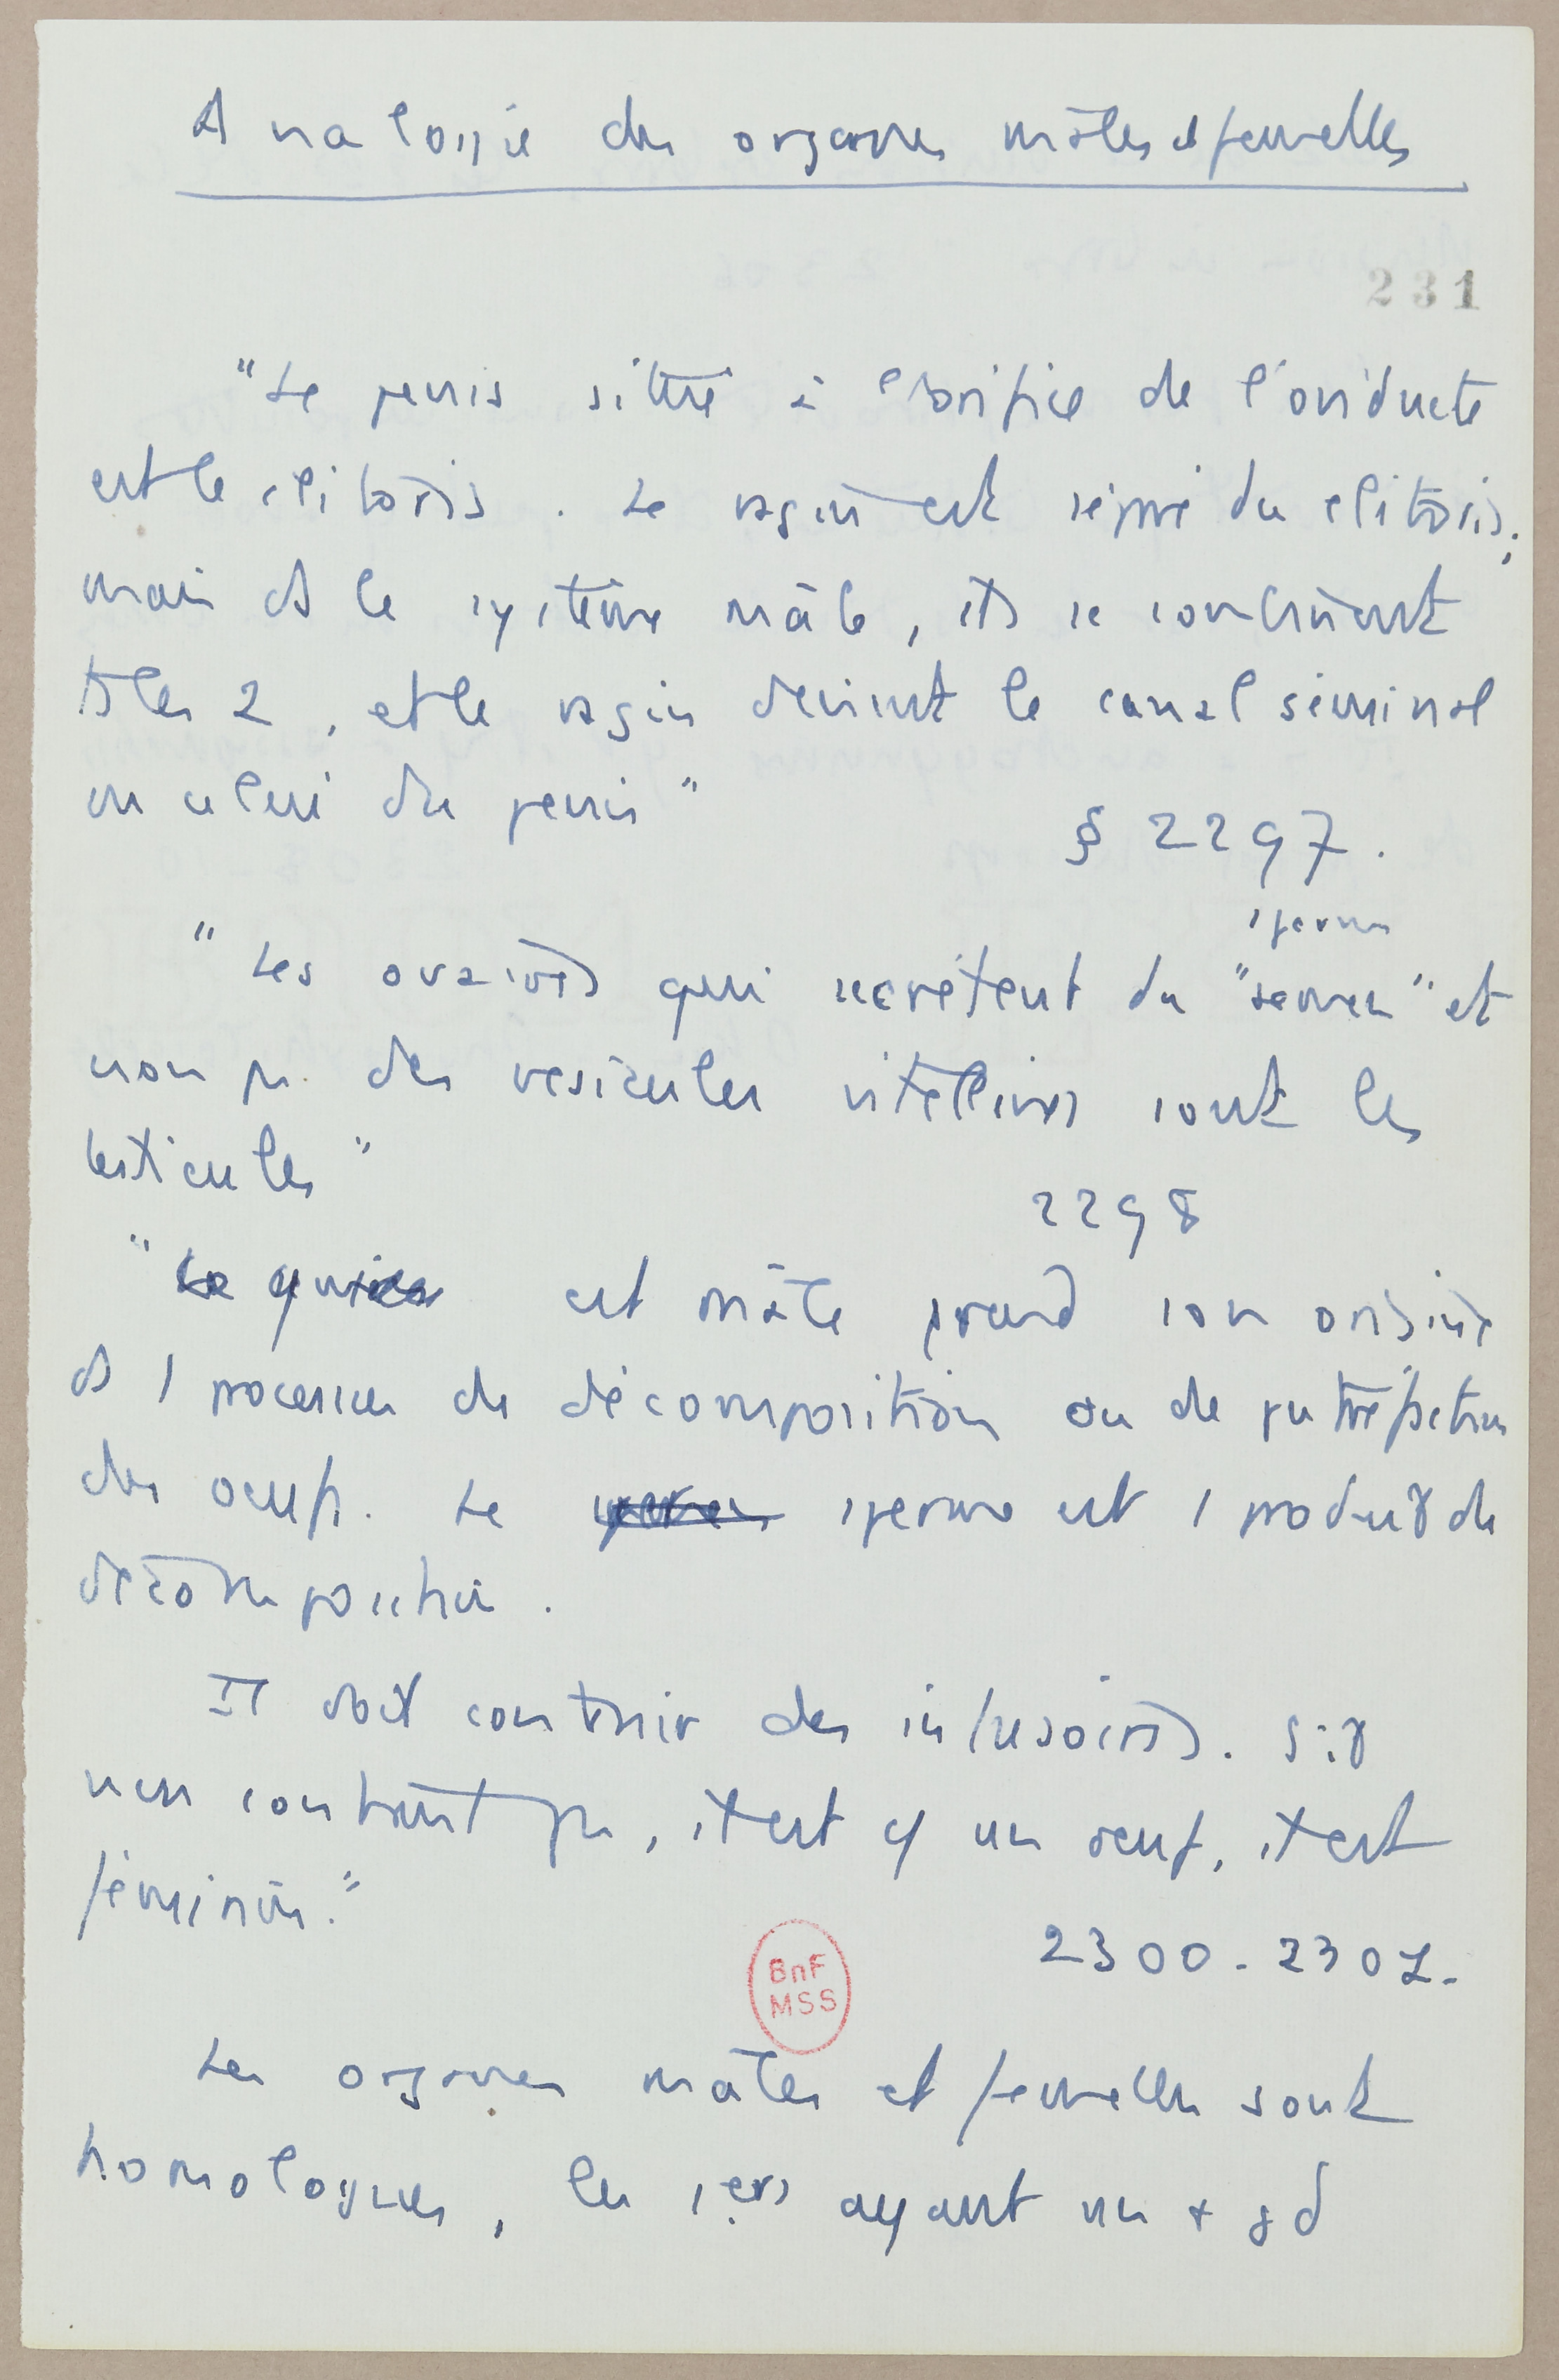 Analogie des organes mâles et femelles
231
"Le penis situé à l'orifice de l'oviducte
est le clitoris. Le vagin est séparé du clitoris;
mais ds le système mâle, ils se combinent
ts les 2, et le vagin devient le canal séminal
ou celui du penis"
§ 2297.
sperme
"Les ovaires qui secrètent du "semen" et
non pas des vesicules vitellines sont les
testicules"
2298
" est mâle prend son origine
ds 1 processus de décomposition ou de putréfaction
des oeufs. Le sperme est 1 produit de
décomposition.
Il doit contenir des infusoires. S'il
n'en contient pas, il est cô un oeuf, il est
féminin."
BnF
MSS
2300-2301.
Les organes mâles et femelles sont
homologues, les 1ers ayant un + gd